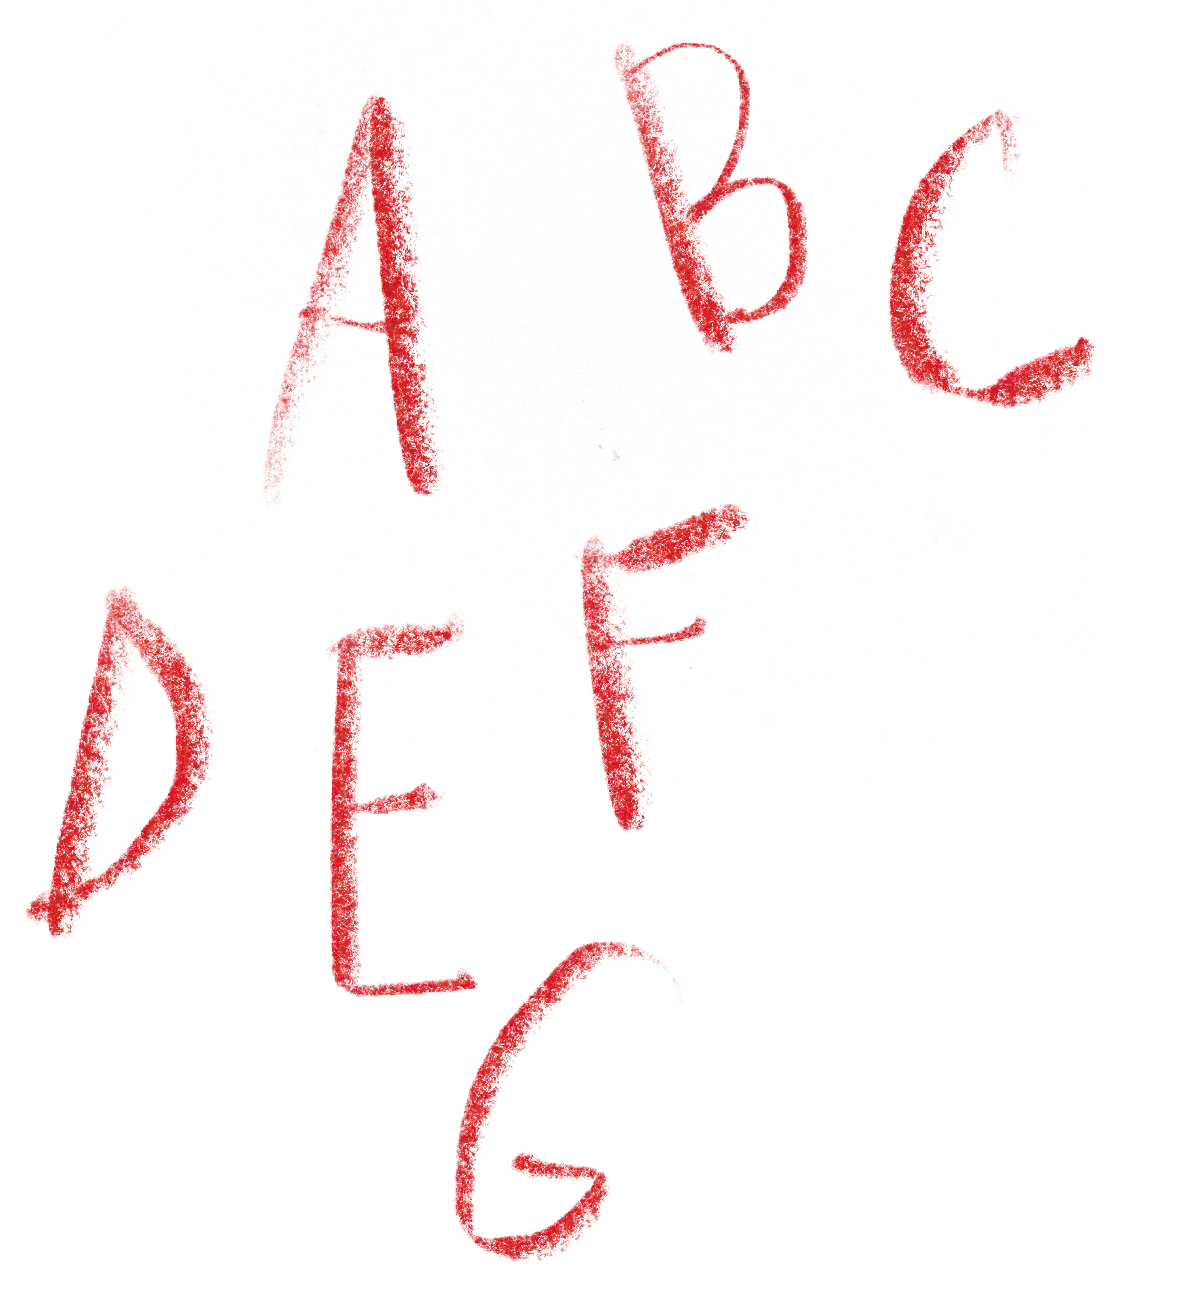 A B C
D E F
G